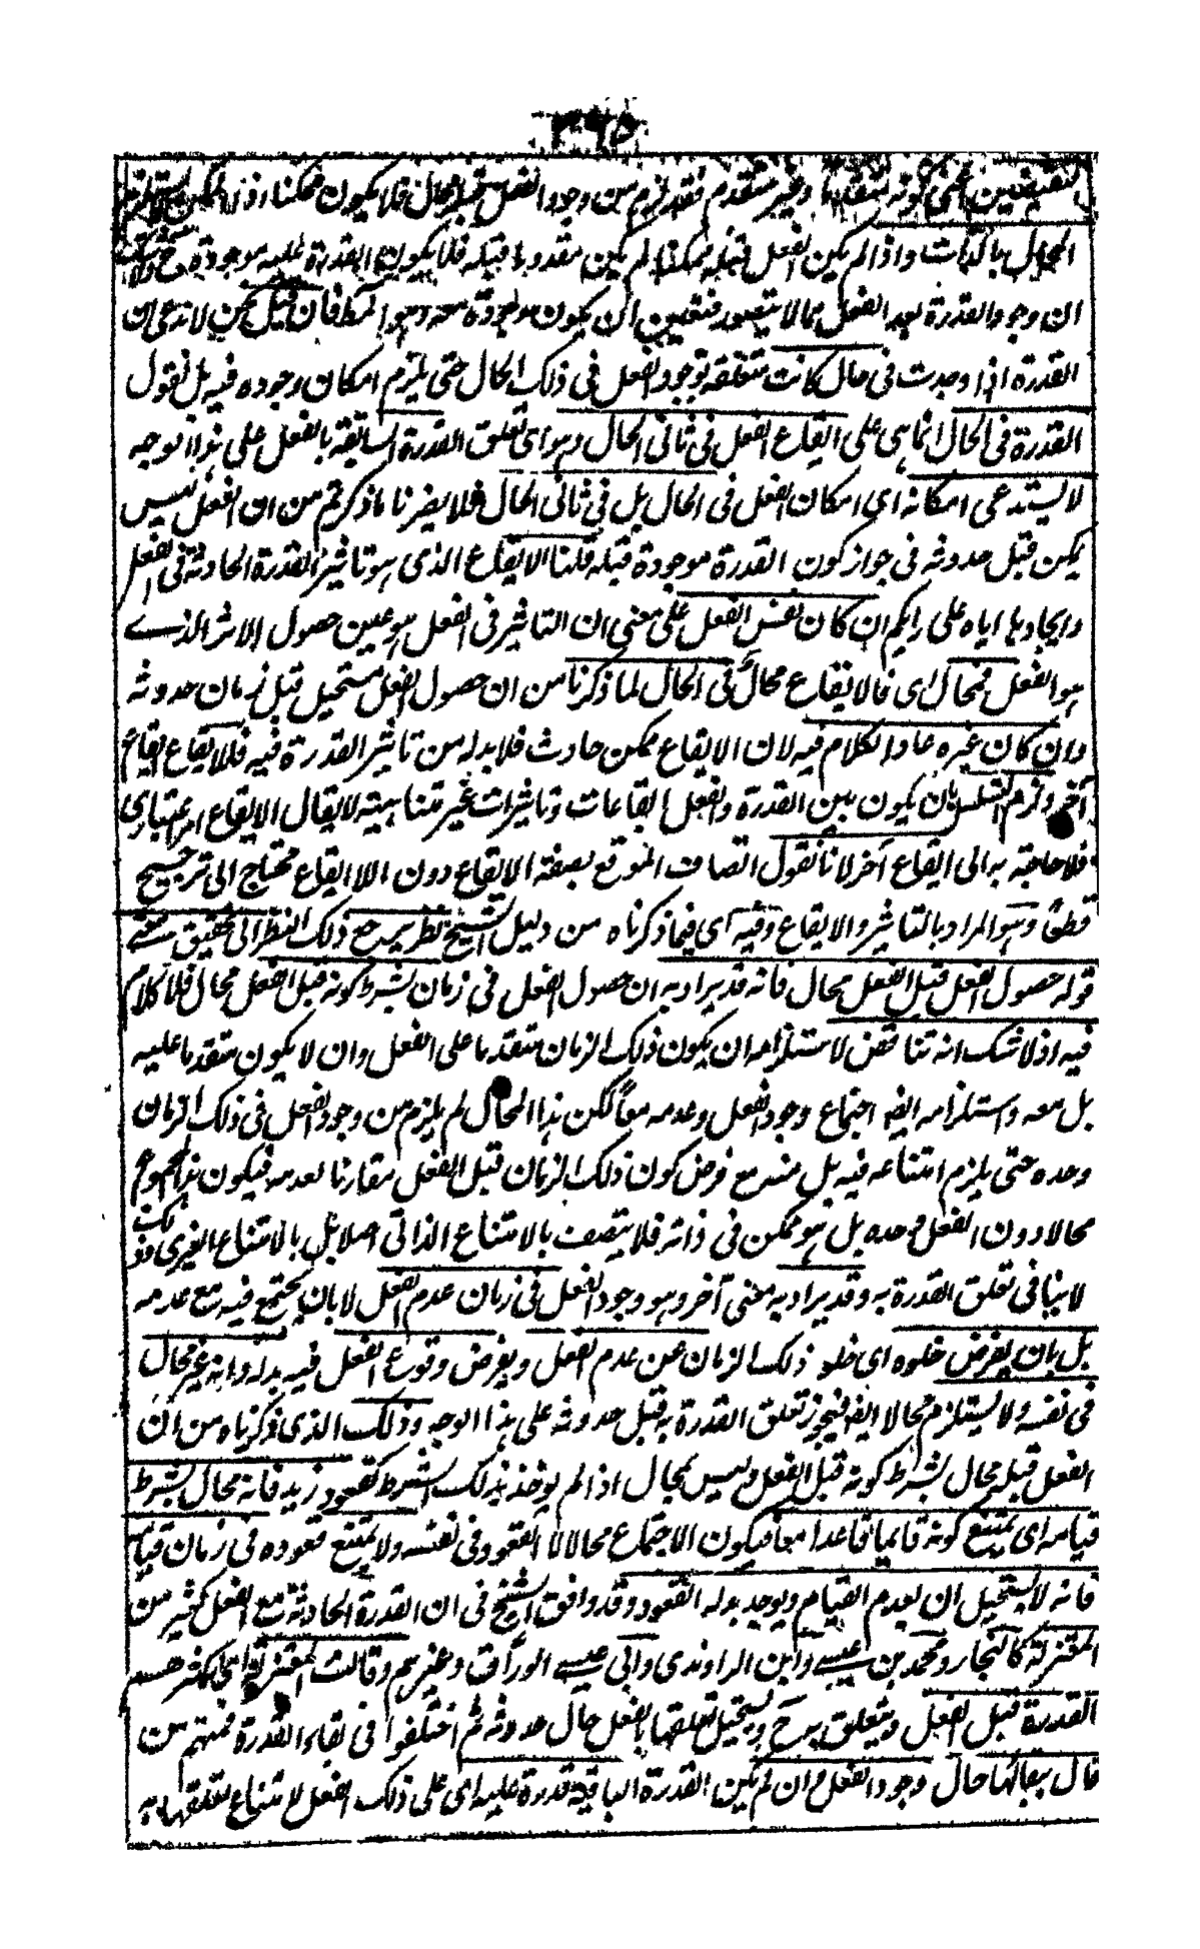 ٣٦٥
النقيضين اعنى كونه متقدما وغير متقدم فقد لزم من وجود الفعل قبله محال فلا يكون ممكنا اذ الممكن لا يستلزم
المحال بالذات واذا لم يكن الفعل قبله ممكنا لم يكن مقدورا قبله فلا يكون القدرة عليه موجودة ح ولا شك
ان وجود القدرة بعد الفعل مما لا يتصور فتعين ان يكون موجودة معه وهو المط فان قيل نحن لا ندعى ان
القدرة اذا وجدت فى حال كانت متعلقة بوجود الفعل فى ذلك الحال حتى يلزم امكان وجوده فيه بل نقول
القدرة فى الحال انما هى على ايقاع الفعل فى ثانى الحال وهو اى تعلق القدرة السابقة بالفعل على هذا الوجه
لا يستدعى امكانه اى امكان الفعل فى الحال بل فى ثانى الحال فلا يضرنا ما ذكرتم من ان الفعل ليس
يمكن قبل حدوثه فى جواز كون القدرة موجودة قبله قلنا الايقاع الذى هو تاثير القدرة الحادثة فى الفعل
وايجادها اياه على رايكم ان كان نفس الفعل على معنى ان التاثير فى الفعل هو عين حصول الاثر الذى
هو الفعل فمحال اى فالايقاع محال فى الحال لما ذكرنا من ان حصول الفعل مستحيل قبل زمان حدوثه
وان كان غيره عاد الكلام فيه لان الايقاع ممكن حادث فلا بد له من تاثير القدرة فيه فللايقاع ايقاع
آخر ولزم التسلسل بان يكون بين القدرة والفعل ايقاعات وتاثيرات غير متناهية لا يقال الايقاع امر اعتبارى
فلا حاجة به الى ايقاع آخر لانا نقول اتصاف الموقع بصفة الايقاع دون اللا ايقاع محتاج الى ترجيح
قطعا وهو المراد بالتاثير والايقاع وفيه اى فيما ذكرناه من دليل الشيخ نظر يرجع ذلك النظر الى تحقيق معنى
قوله حصول الفعل قبل الفعل محال فانه قد يراد به ان حصول الفعل فى زمان بشرط كونه قبل الفعل محال فلا كلام
فيه اذ لا شك انه تناقض لاستلزامه ان يكون ذلك الزمان متقدما على الفعل وان لا يكون متقدما عليه
بل معه واستلزامه ايضا اجتماع وجود الفعل وعدمه معا لكن هذا المحال لم يلزم من وجود الفعل فى ذلك الزمان
وحده حتى يلزم امتناعه فيه بل منه مع فرض كون ذلك الزمان قبل الفعل مقارنا لعدمه فيكون هذا المجموع
محالا دون الفعل وحده بل هو ممكن فى ذاته فلا يتصف بالامتناع الذاتى اصلا بل بالامتناع الغيرى وذلك
لا ينافى تعلق القدرة به وقد يراد به معنى آخر وهو وجود الفعل فى زمان عدم الفعل لا بان يجتمع فيه مع عدمه
بل بان يفرض خلوه اى خلو ذلك الزمان عن عدم الفعل ويفرض وقوع الفعل فيه بدله وانه غير محال
فى نفسه ولا يستلزم محالا ايضا فيجوز تعلق القدرة به قبل حدوثه على هذا الوجه وذلك الذى ذكرناه من ان
الفعل قبله محال بشرط كونه قبل الفعل وليس بمحال اذا لم يؤخذ بذلك الشرط كقعود زيد فانه محال بشرط
قيامه اى يمتنع كونه قائما قاعدا معا فيكون الاجتماع محالا لا القعود فى نفسه ولا يمتنع قعوده فى زمان قيامه
فانه لا يستحيل ان يعدم القيام ويوجد بدله القعود وقد وافق الشيخ فى ان القدرة الحادثة مع الفعل كثير من
المعتزلة كالنجار ومحمد بن عيسى وابن الراوندى وابى عيسى الوراق وغيرهم وقالت المعتزلة اى اكثرهم
القدرة قبل الفعل ويتعلق به ح ويستحيل تعلقها بالفعل حال حدوثه ثم اختلفوا فى بقاء القدرة فمنهم من
قال ببقائها حال وجود الفعل وان لم يكن القدرة الباقية قدرة عليه اى على ذلك الفعل لامتناع تعلقها به